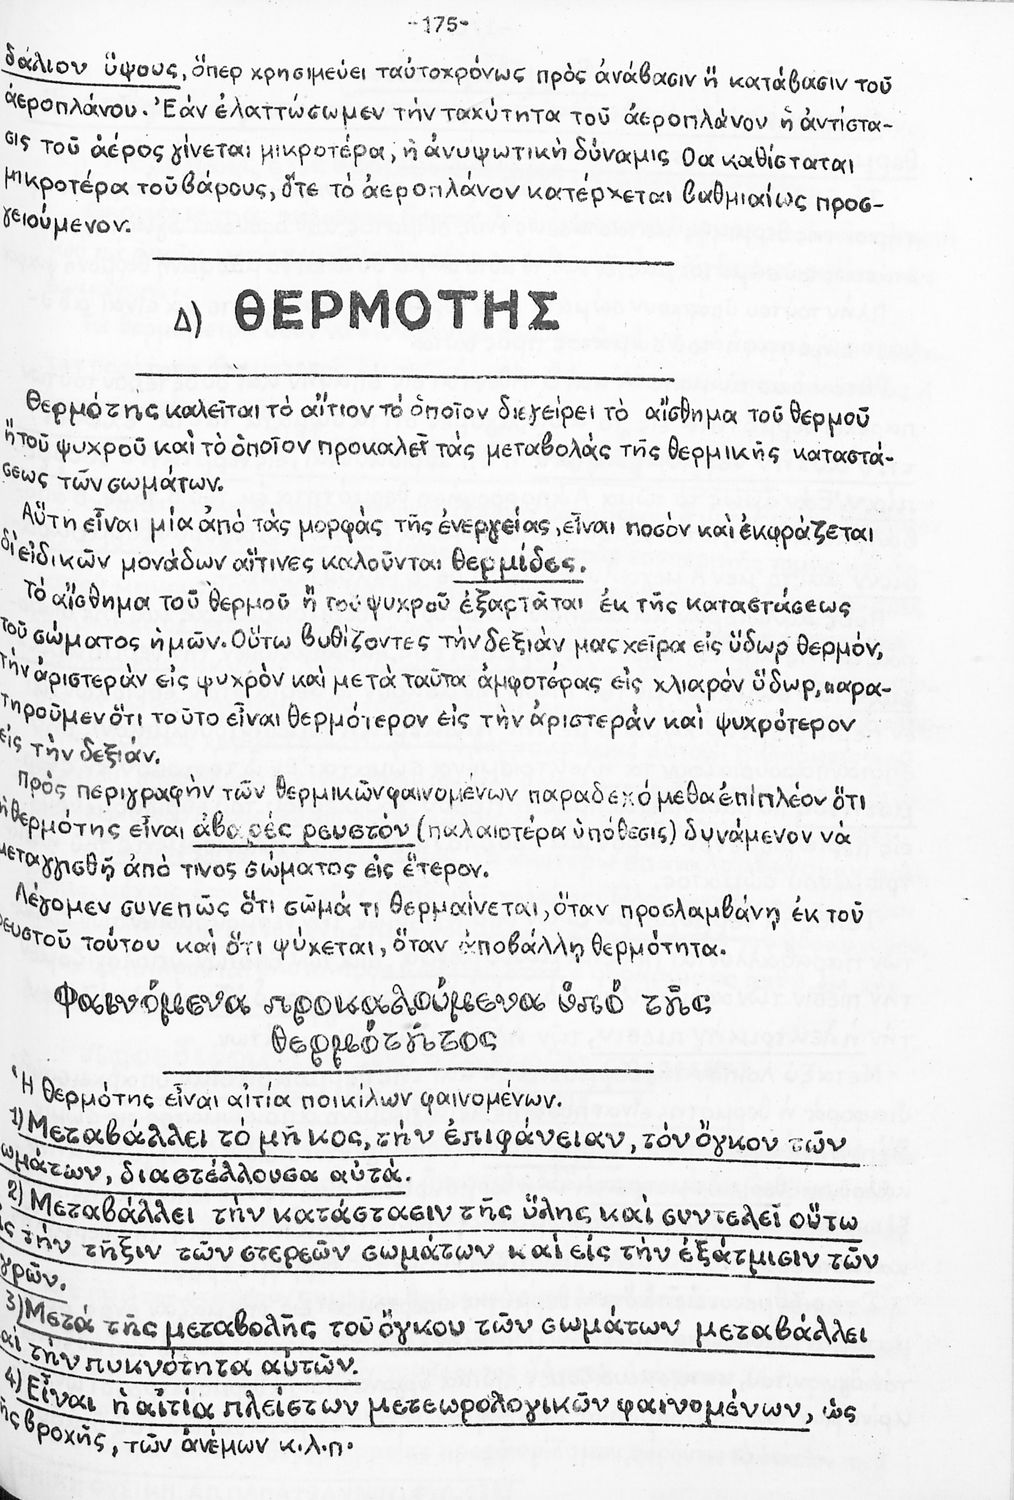 -175-
δάλιον ὕψους, ὅπερ χρησιμεύει ταὐτοχρόνως πρὸς ἀνάβασιν ἢ κατάβασιν τοῦ
ἀεροπλάνου. Ἐάν ἐλαττώσωμεν τὴν ταχύτητα τοῦ ἀεροπλάνον ἡ ἀντίστα-
σις τοῦ ἀέρος γίνεται μικροτέρα, ἡ ἀνυψωτικὴ δύναμις θα καθίσταται
μικροτέρα τοῦ βάρους, ὅτε τὸ ἀεροπλάνον κατέρχεται βαθμιαίως προσ-
γειούμενον.
Δ) ΘΕΡΜΟΤΗΣ
Θερμότης καλεῖται τὸ αἴτιον τὸ ὁποῖον διεγείρει τὸ αἴσθημα τοῦ θερμοῦ
ἢ τοῦ ψυχροῦ καὶ τὸ ὁποῖον προκαλεῖ τάς μεταβολάς τῆς θερμικῆς καταστά-
σεως τῶν σωμάτων.
Αὕτη εἶναι μία ἀπό τάς μορφάς τῆς ἐνεργείας, εἶναι ποσόν καὶ ἐκφράζεται
δι' εἰδικῶν μονάδων αἵτινες καλοῦνται θερμίδες.
Τὸ αἴσθημα τοῦ θερμοῦ ἢ τοῦ ψυχροῦ ἐξαρτᾶται ἐκ τῆς καταστάσεως
τοῦ σώματος ἡμῶν. Οὕτω βυθίζοντες τὴν δεξιὰν μας χεῖρα εἰς ὕδωρ θερμόν,
τὴν ἀριστερὰν εἰς ψυχρὸν καὶ μετὰ ταῦτα ἀμφοτέρας εἰς χλιαρὸν ὕδωρ, παρα-
τηροῦμεν ὅτι τοῦτο εἶναι θερμότερον εἰς τὴν ἀριστερὰν καὶ ψυχρότερον
εἰς τὴν δεξιάν.
Πρός περιγραφὴν τῶν θερμικῶν φαινομένων παραδεχόμεθα ἐπὶ πλέον ὅτι
ἡ θερμότης εἶναι ἀβαρές ρευστόν (παλαιοτέρα ὑπόθεσις) δυνάμενον νὰ
μεταγγισθῇ ἀπό τινος σώματος εἰς ἕτερον.
Λέγομεν συνεπῶς ὅτι σῶμά τι θερμαίνεται, ὅταν προσλαμβάνῃ ἐκ τοῦ
ρευστοῦ τούτου καὶ ὅτι ψύχεται, ὅταν ἀποβάλλῃ θερμότητα.
Φαινόμενα προκαλούμενα ὑπό τῆς
θερμότητος
Ἡ θερμότης εἶναι αἰτία ποικίλων φαινομένων.
1) Μεταβάλλει τὸ μῆκος, τὴν ἐπιφάνειαν, τὸν ὄγκον τῶν
ωμάτων, διαστέλλουσα αὐτά.
2) Μεταβάλλει τὴν κατάστασιν τῆς ὕλης καὶ συντελεῖ οὕτω
ἰς τὴν τῆξιν τῶν στερεῶν σωμάτων καὶ εἰς τὴν ἐξάτμισιν τῶν
γρῶν.
3) Μετά τῆς μεταβολῆς τοῦ ὄγκου τῶν σωμάτων μεταβάλλει
αὶ τὴν πυκνότητα αὐτῶν.
4) Εἶναι ἡ αἰτία πλείστων μετεωρολογικῶν φαινομένων, ὡς
ῆς βροχῆς, τῶν ἀνέμων κ.λ.π.